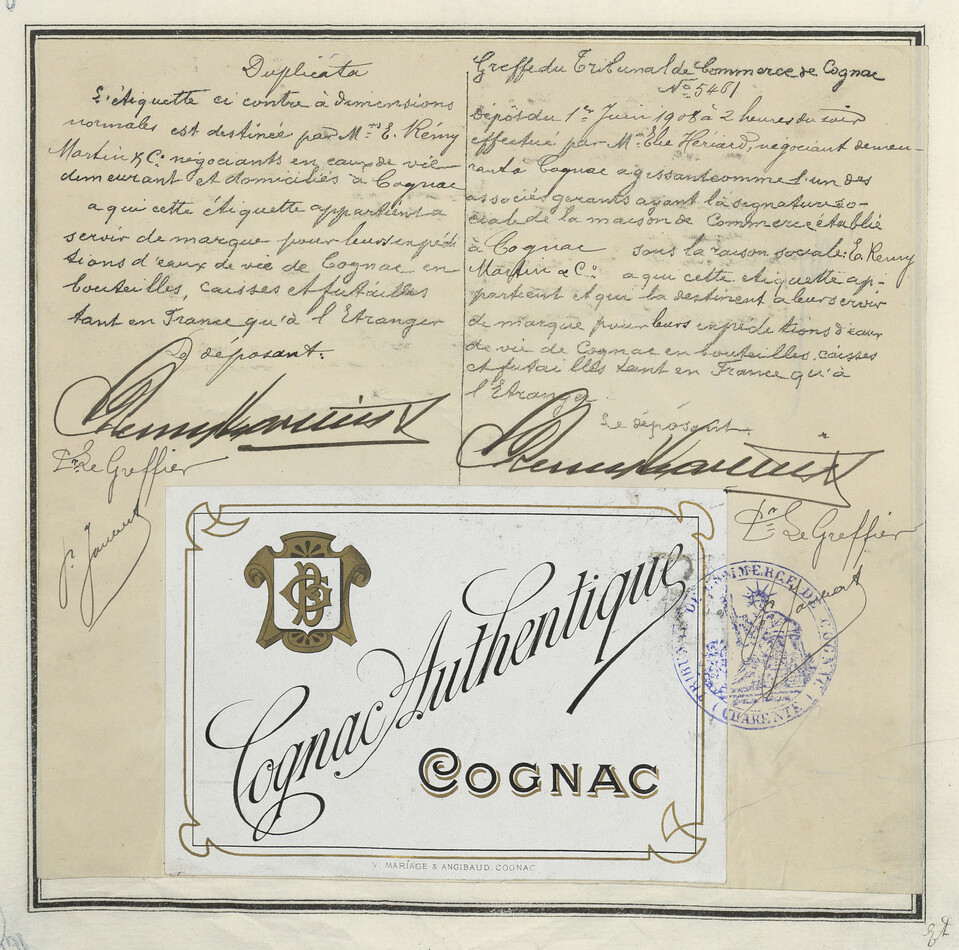 Duplicata
L'étiquette ci contre à dimensions
normales est destinée par Mrs E. Rémy
Martin & Co. négociants en eaux de vie
demeurant et domiciliés à Cognac
a qui cette étiquette appartient a
servir de marque pour leurs expédi
tions d'eaux de vie de Cognac en
bouteilles, caisses et futailles
tant en France qu'à l'Etranger
Le déposant.
E. Remy Martin & Co
Pr Le Greffier
Greffe du Tribunal de Commerce de Cognac
No 5461
Dépôt du 1er Juin 1908 à 2 heures du soir
effectué par Mr Elie Hériard, négociant demeu-
rant à Cognac agissant comme l'un des
associés gerants ayant la signature so-
ciale de la maison de Commerce établie
à Cognac sous la raison sociale: E. Remy
Martin & Co. a qui cette etiquette ap-
partient et qui la destinent a leur servir
de marque pour leurs expéditions d'eaux
de vie de Cognac en bouteilles, caisses
et futailles tant en France qu'à
l'Etranger.
Le déposant.
E. Remy Martin & Co
Pr Le Greffier
Cognac Authentique
COGNAC
V. MARIAGE & ANGIBAUD. COGNAC
TRIBUNAL DE COMMERCE DE COGNAC
(CHARENTE)